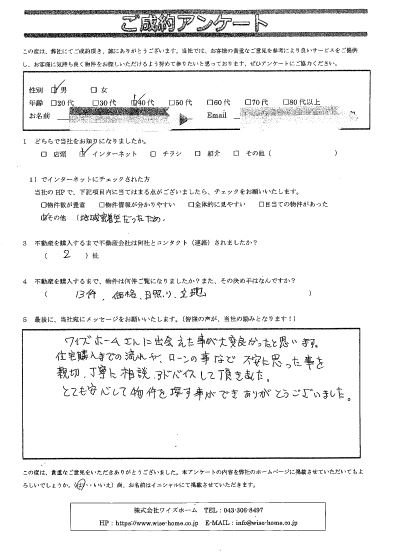 ご成約アンケート
この度は、弊社にてご成約頂き、誠にありがとうございます。当社では、お客様の貴重なご意見を参考により良いサービスをご提供
し、お客様に気持ち良く物件をお探しいただけるよう努めて参りたいと思っております。ぜひアンケートにご協力ください。
性別 ☑男 □女
年齢 □20代 □30代 ☑40代 □50代 □60代 □70代 □80代以上
お名前 Email
1 どちらで当社をお知りになりましたか。
□ 店頭 ☑ インターネット □ チラシ □ 紹介 □ その他 ( )
1) でインターネットにチェックされた方
当社のHPで、下記項目内に当てはまる点がございましたら、チェックをお願いいたします。
□物件数が豊富 □物件情報が分かりやすい □全体的に見やすい □目当ての物件があった
☑その他 (地域密着型だったため)
3 不動産を購入するまで不動産会社は何社とコンタクト(連絡)されましたか?
( 2 ) 社
4 不動産を購入するまで、物件は何件ご覧になりましたか?また、その決め手はなんですか?
( 13件、価格、日照り、立地 )
5 最後に、当社宛にメッセージをお願いいたします。(皆様の声が、当社の励みとなります!)
ワイズホームさんに出会えた事が大変良かったと思います。
住宅購入までの流れや、ローンの事など不安に思った事を
親切、丁寧に相談、アドバイスして頂きました。
とても安心して物件を探す事ができありがとうございました。
この度は、貴重なご意見をいただきありがとうございました。本アンケートの内容を弊社のホームページに掲載させていただいてもよ
ろしいでしょうか。(はい・いいえ) 尚、お名前はイニシャルにて掲載させていただきます。
株式会社ワイズホーム TEL:043-308-8497
HP:https://www.wise-home.co.jp E-MAIL:info@wise-home.co.jp